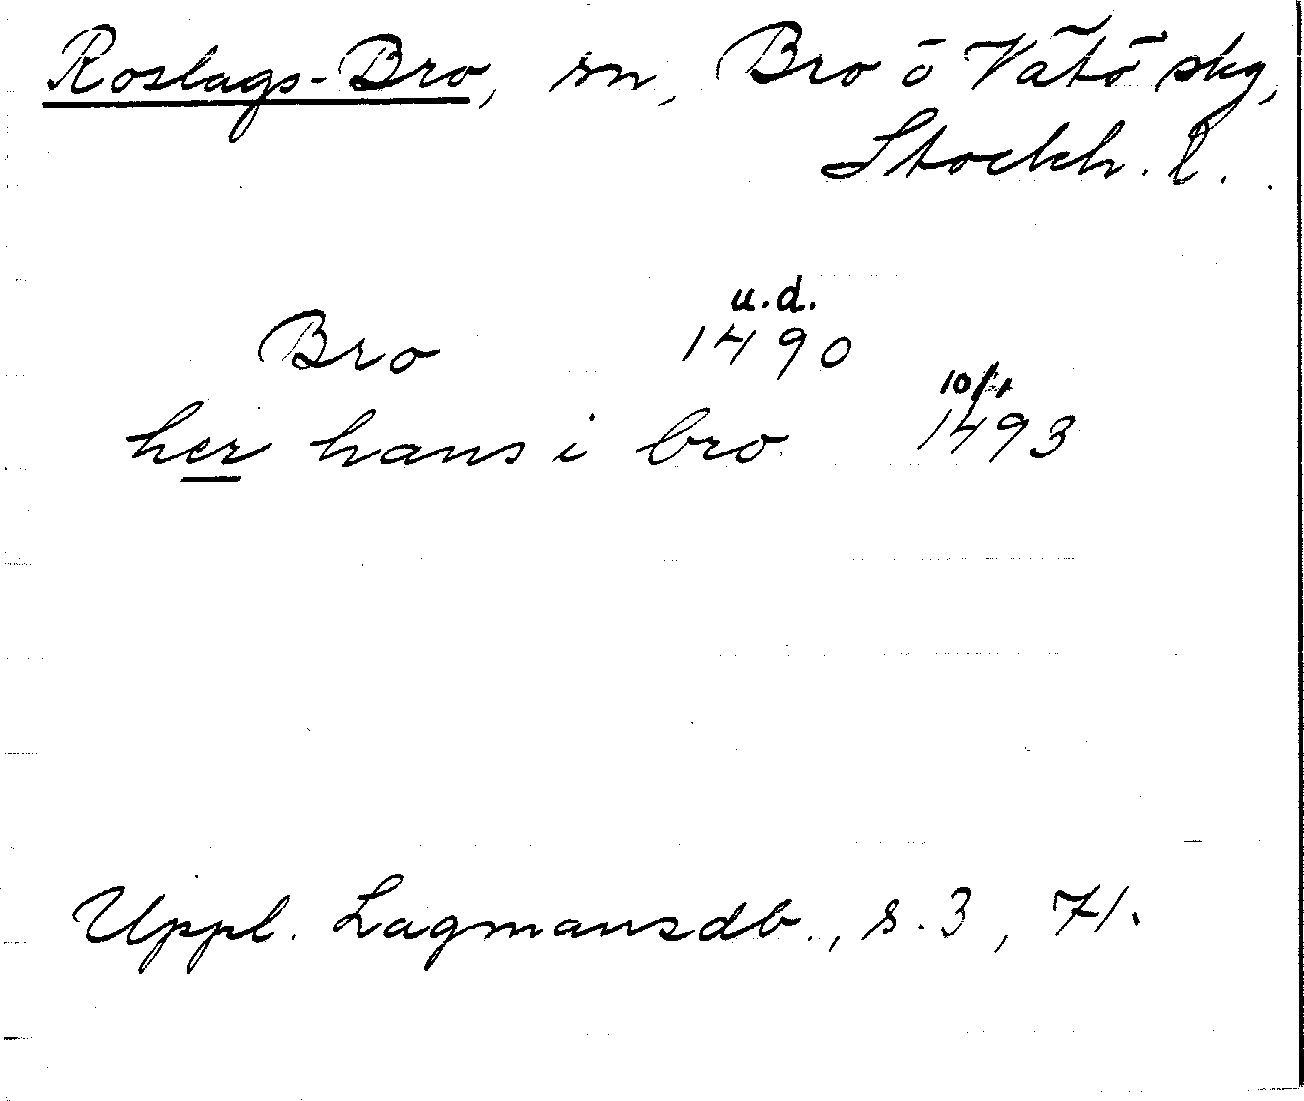 Roslags-Bro, sn, Bro o Vätö skg,
Stockh. l.
u.d.
Bro 1490
10/1
her hans i bro 1493
Uppl. Lagmansdb., s. 3, 71.